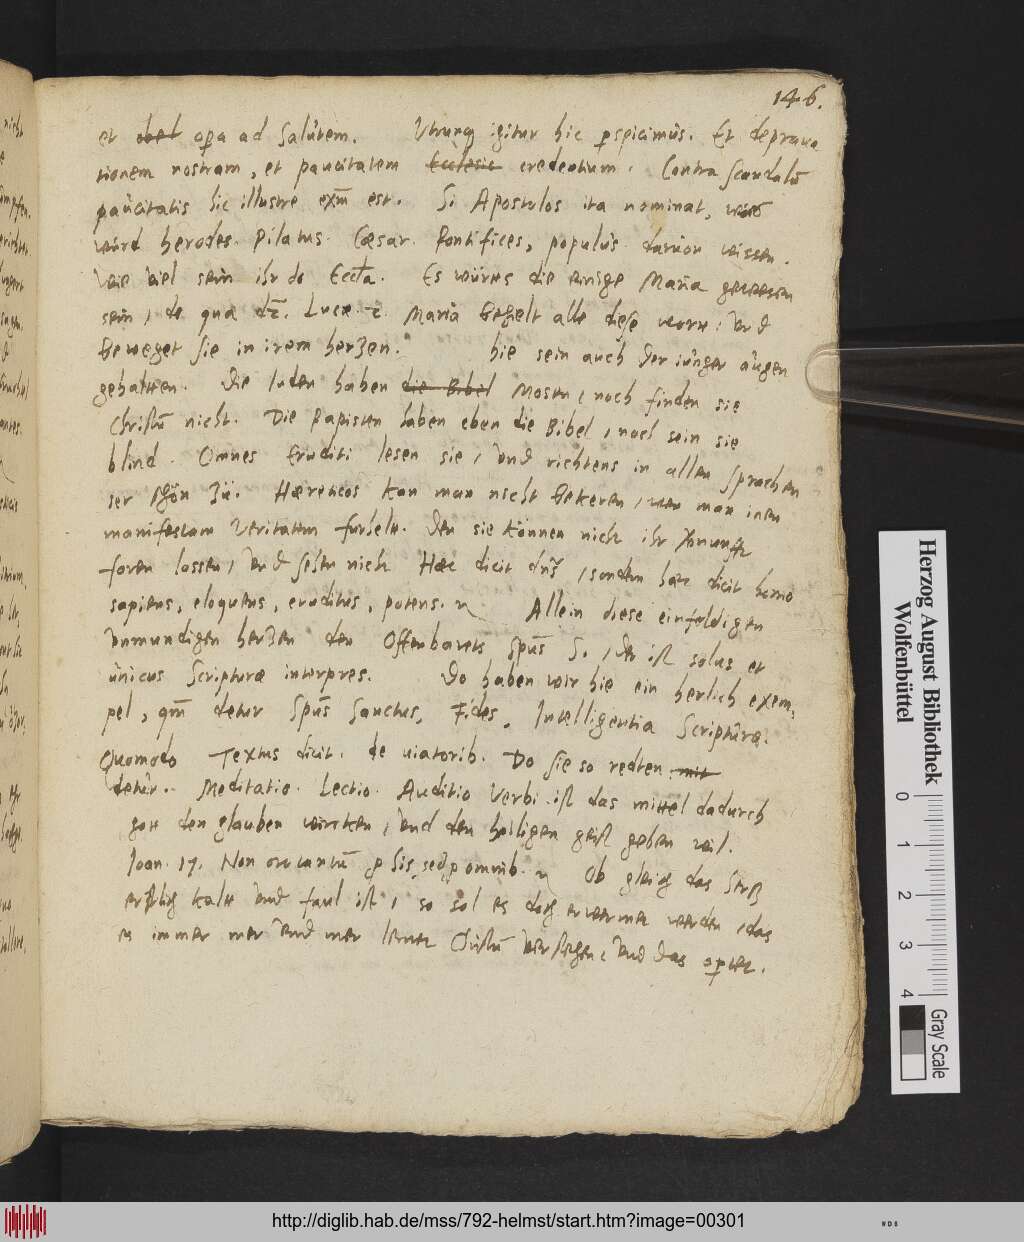 146.
et obel opa ad Salutem. Utrunq igitur hic pspicimus. Et deprava
tionem nostram, et paucitatem Ecclesie credentium. Contra scandalū
paucitatis hic illustre exm̄ est. Si Apostolos ita nominat,
würd herodes. Pilatus. Cæsar. Pontifices, populus. davon wissen.
Wie viel sein ihr do Eccl̄a. Es würts die einige Maria gewessen
sein, de qua dc̄. Luce 2. Maria behelt alle diese wort: und
beweget sie in irem herzen. hie sein auch der iünger augen
gehalten. Die Juden haben die Bibel Mosen, noch finden sie
Christū nicht. Die Papisten haben eben die Bibel, noch sein sie
blind. Omnes Eruditi lesen sie, und richtens in allen sprachen
ser schön zu. Hæreticos kan man nicht bekeren, wen man inen
manifestam veritatem furhelt. Den sie können nicht ihr
faren lassen, und sehen nicht Hæc dicit dn̄s, sondern hæc dicit homo
sapiens, eloquens, eruditus, potens. Allein diese einfeldigen
unmundigen herzen den Offenbarets Spūs S., der ist solus et
unicus Scripturæ interpres. Do haben wir hie ein herlich exem,
pel, detur Spūs Sanctus, Fides, Intelligentia Scripturæ.
Quomodo Textus dicit. de viatorib. Do sie so redten mit
detur. Meditatio. Lectio. Auditio Verbi ist das mittel dadurch
gott den glauben wircken, und den heiligen geist geben wil.
Joan. 17. Non orō tantū p his, sed p omnib. Ob gleich das
erstlich kalt und faul ist, so sol es doch erwermet werden, das
es immer mer und mer lernet Christū, und das
Herzog August Bibliothek
Wolfenbüttel
0 1 2 3 4
Gray Scale
http://diglib.hab.de/mss/792-helmst/start.htm?image=00301